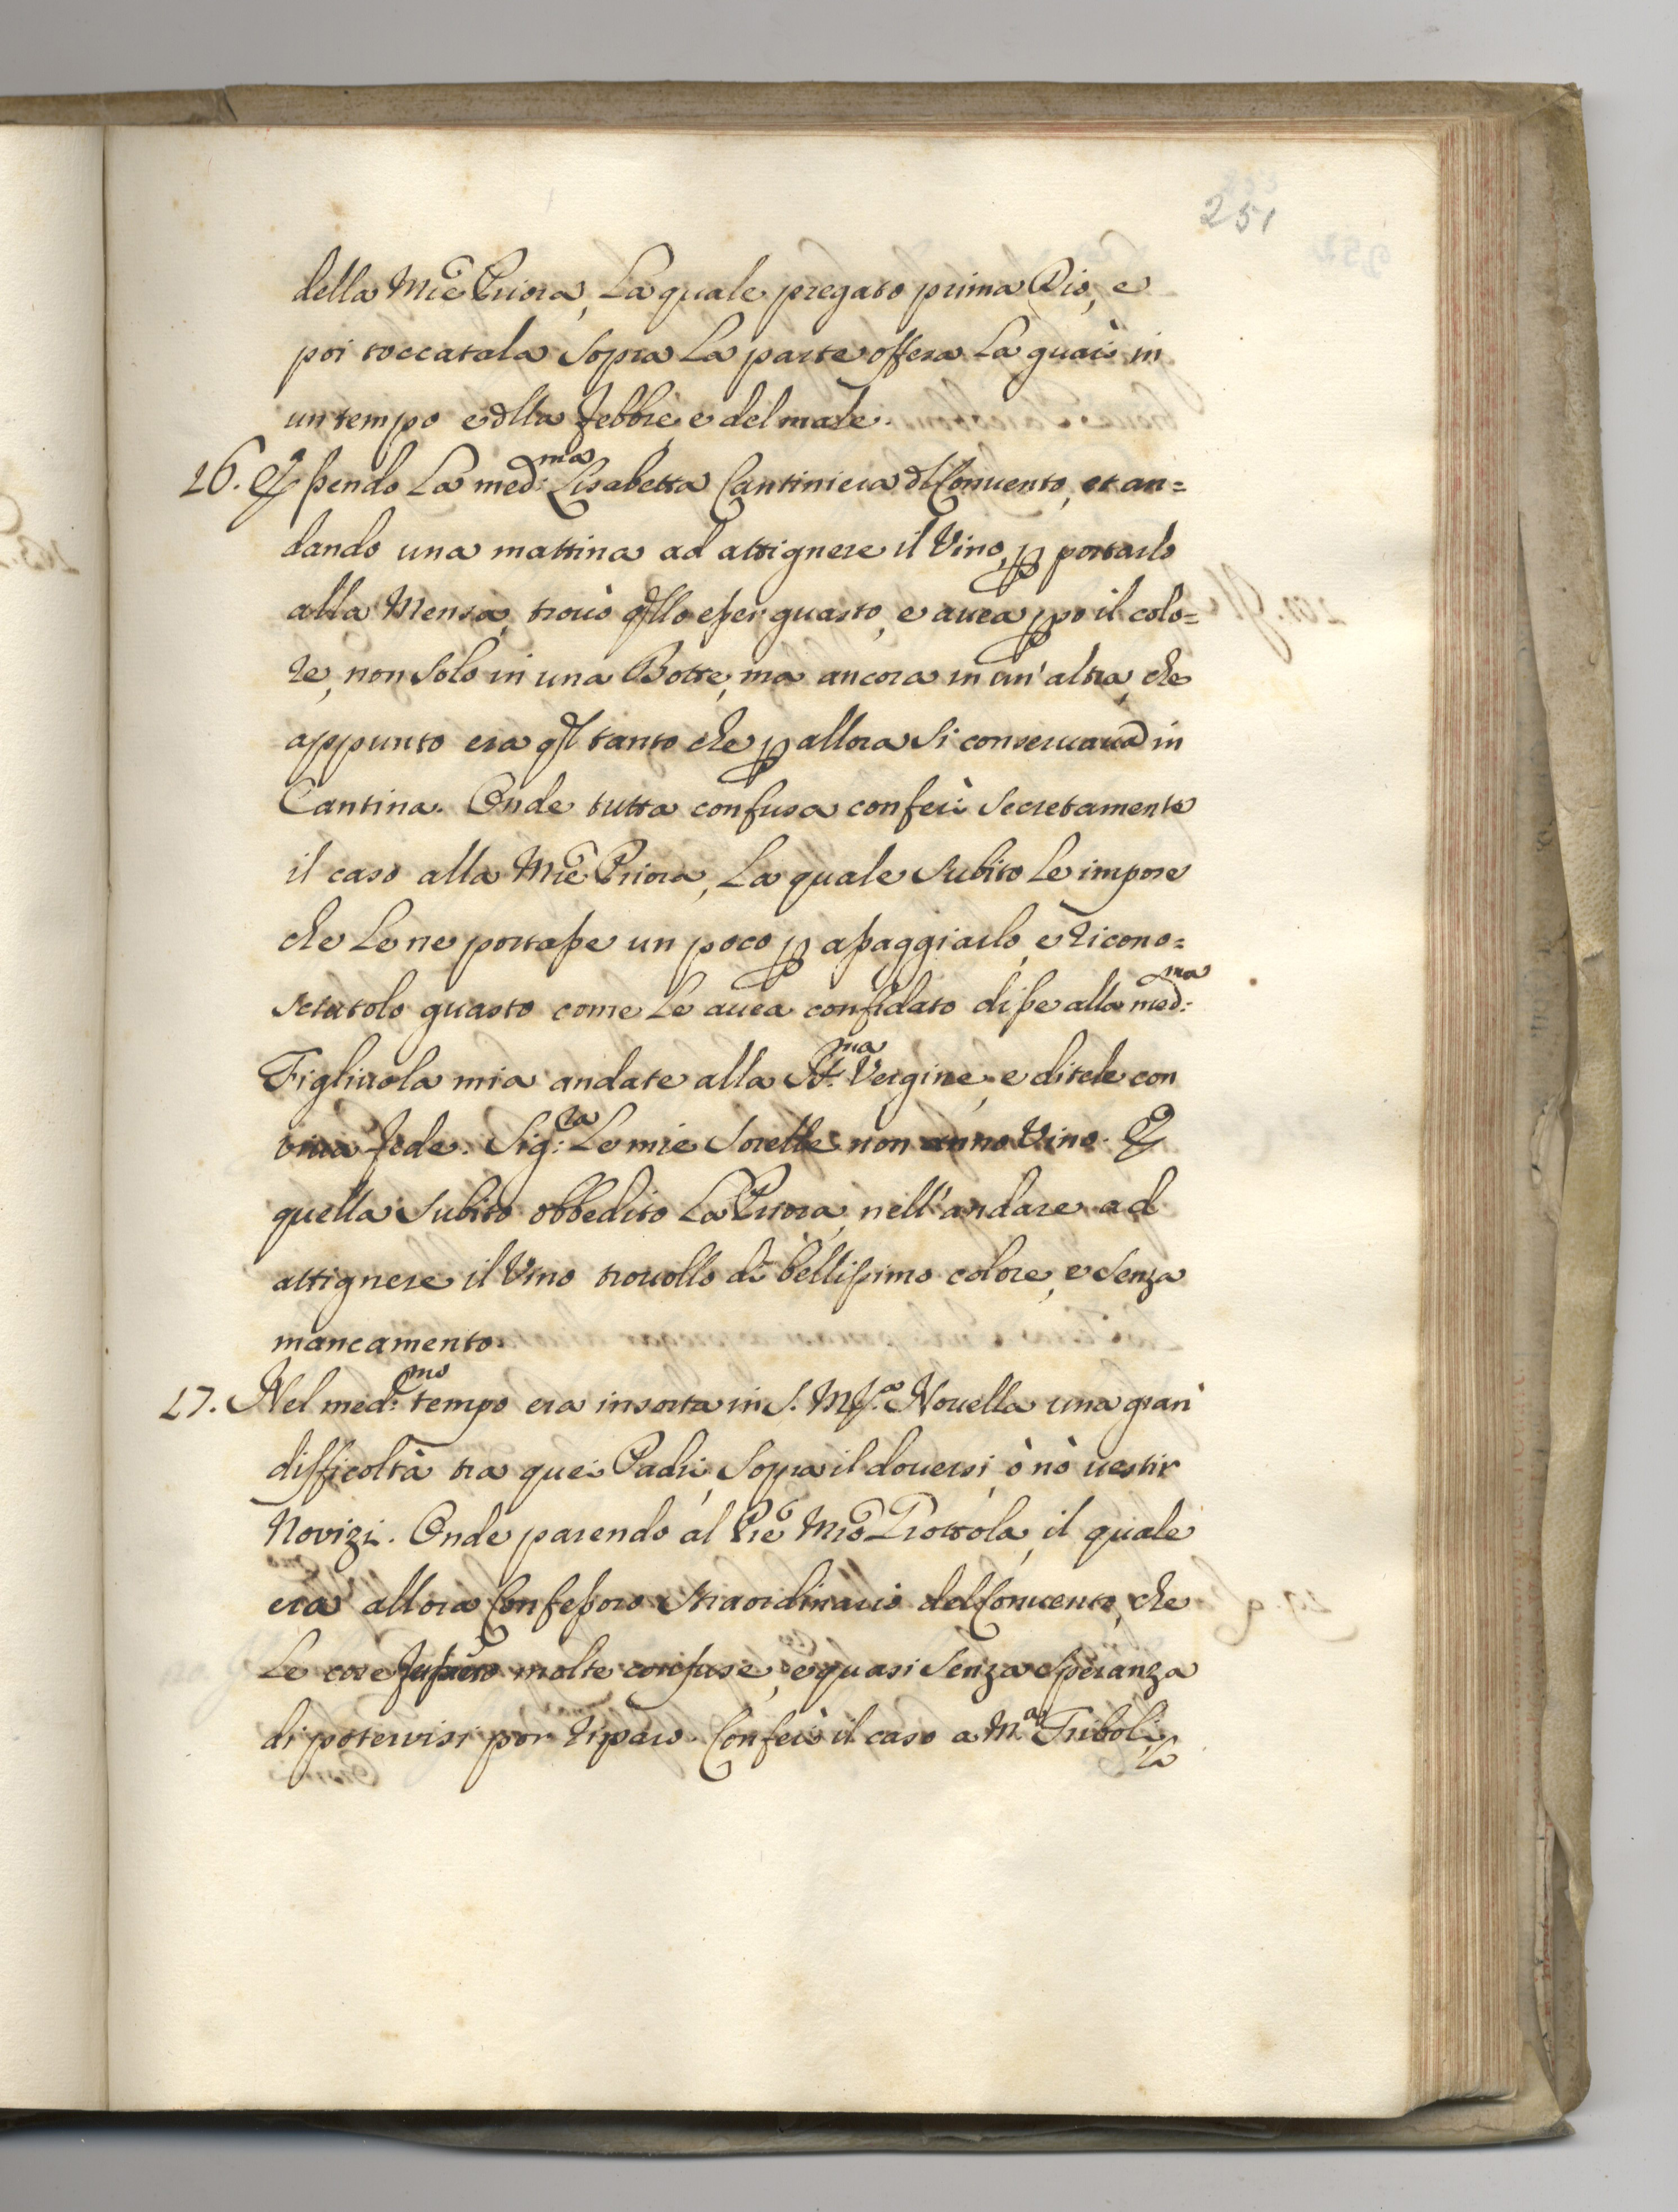 251
della Mrē Priora, La quale pregato prima Dio, e
poi toccatala sopra La parte offesa La guarì in
un tempo e dlla febbre e del male.
26. Essendo La med:ma Lisabetta Cantiniera dl Convento, et an=
dando una mattina ad attignere il Vino, p portarlo
alla Mensa, trovò qllo esser guasto, e avea pso il colo=
re, non solo in una Botte, ma ancora in un'altra, che
appunto era ql tanto che p allora si conservava in
Cantina. Onde tutta confusa conferì secretamente
il caso alla Mrē Priora, La quale subito Le impose
che Le ne portasse un poco p assaggiarlo, e ricono=
sciutolo guasto come Le avea confidato disse alla med:ma
Figliuola mia andate alla SS.ma Vergine, e ditele con
viva fede. Sig:ra Le mie Sorelle non anno Vino. E
quella subito obbedito La Priora, nell'andare ad
attignere il Vino trovollo di bellissimo colore, e senza
mancamento.
27. Nel med:mo tempo era insorta in S. M.a Novella una gran
difficoltà tra quei Padri, sopra il doversi, ò nò vestir
Novizi. Onde parendo al Prē Mrō Trottola, il quale
era allora Confessoro straordinario del Convento, che
Le cose fussero molte confuse, e quasi senza speranza
di potervisi por riparo. Conferì il caso a M.a Triboli,
la